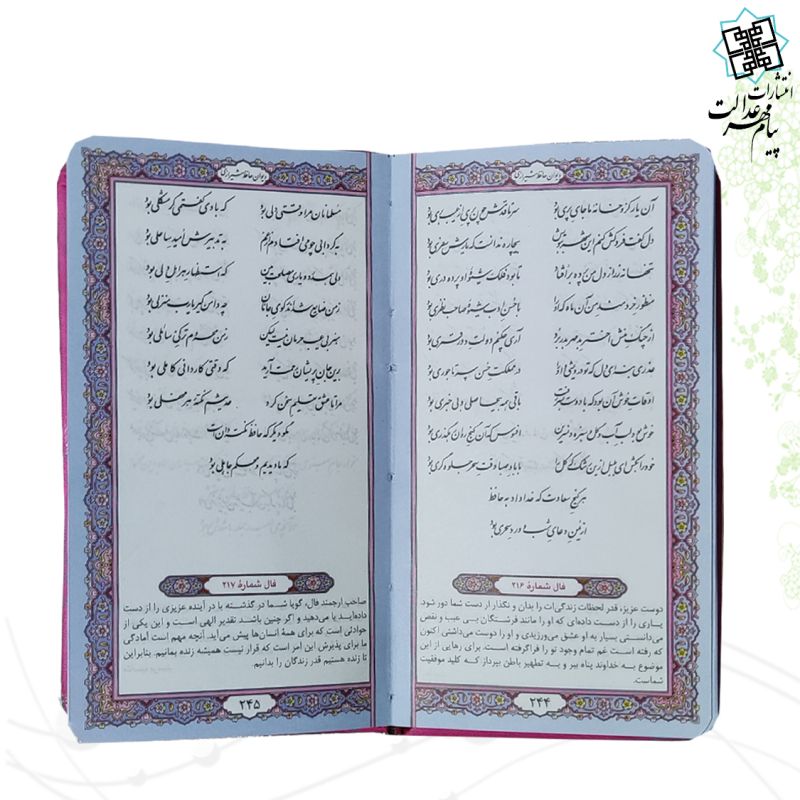 انتشارات
پیام مهر عدالت
دیوان حافظ شیرازی
آن یار کزو خانهٔ ما جای پری بود
سر تا قدمش چون پری از عیب بری بود
دل گفت فروکش کنم این شهر به بویش
بیچاره ندانست که یارش سفری بود
تنها نه ز راز دل من پرده برافتاد
تا بود فلک شیوهٔ او پرده دری بود
منظور خردمند من آن ماه که او را
با حسن ادب شیوهٔ صاحب نظری بود
از چنگ منش اختر بدمهر به در برد
آری چکنم دولت دور قمری بود
عذری بنه ای دل که تو درویشی و او را
در مملکت حسن سر تاجوری بود
اوقات خوش آن بود که با دوست بسر رفت
باقی همه بیحاصلی و بی خبری بود
خوش بود لب آب و گل و سبزه و نسرین
افسوس که آن گنج روان رهگذری بود
خود را بکش ای بلبل ازین رشک که گل را
با باد صبا وقت سحر جلوه گری بود
هر گنج سعادت که خدا داد به حافظ
از یمن دعای شب و ورد سحری بود
فال شمارهٔ ۲۱۶
دوست عزیز، قدر لحظات زندگی‌ات را بدان و نگذار از دست شما دور شود.
یاری را از دست داده‌ای که او را مانند فرشتگان بی عیب و نقص
می‌دانستی بسیار به او عشق می‌ورزیدی و او را دوست می‌داشتی اکنون
که رفته است غم تمام وجود تو را فراگرفته است. برای رهایی از این
موضوع به خداوند پناه ببر و به تطهیر باطن بپرداز که کلید موفقیت
شماست.
۲۴۴
دیوان حافظ شیرازی
مسلمانان مرا وقتی دلی بود
که با وی گفتمی گر مشکلی بود
به گردابی چو می افتادم از غم
به تدبیرش امید ساحلی بود
دلی همدرد و یاری مصلحت بین
که استظهار هر اهل دلی بود
ز من ضایع شد اندر کوی جانان
چه دامن گیر یارب منزلی بود
هنر بی عیب حرمان نیست لیکن
ز من محروم تر کی سائلی بود
برین جان پریشان رحمت آرید
که وقتی کاردانی کاملی بود
مرا تا عشق تعلیم سخن کرد
حدیثم نکتهٔ هر محفلی بود
مگو دیگر که حافظ نکته دان است
که ما دیدیم و محکم جاهلی بود
فال شمارهٔ ۲۱۷
صاحب ارجمند فال، گویا شما در گذشته یا در آینده عزیزی را از دست
داده‌اید یا می‌دهید و اگر چنین باشد تقدیر الهی است و این یکی از
حوادثی است که برای همهٔ انسان‌ها پیش می‌آید. آنچه مهم است آمادگی
ما برای پذیرش این امر است که قرار نیست همیشه زنده بمانیم. بنابراین
تا زنده هستیم قدر زندگان را بدانیم.
۲۴۵